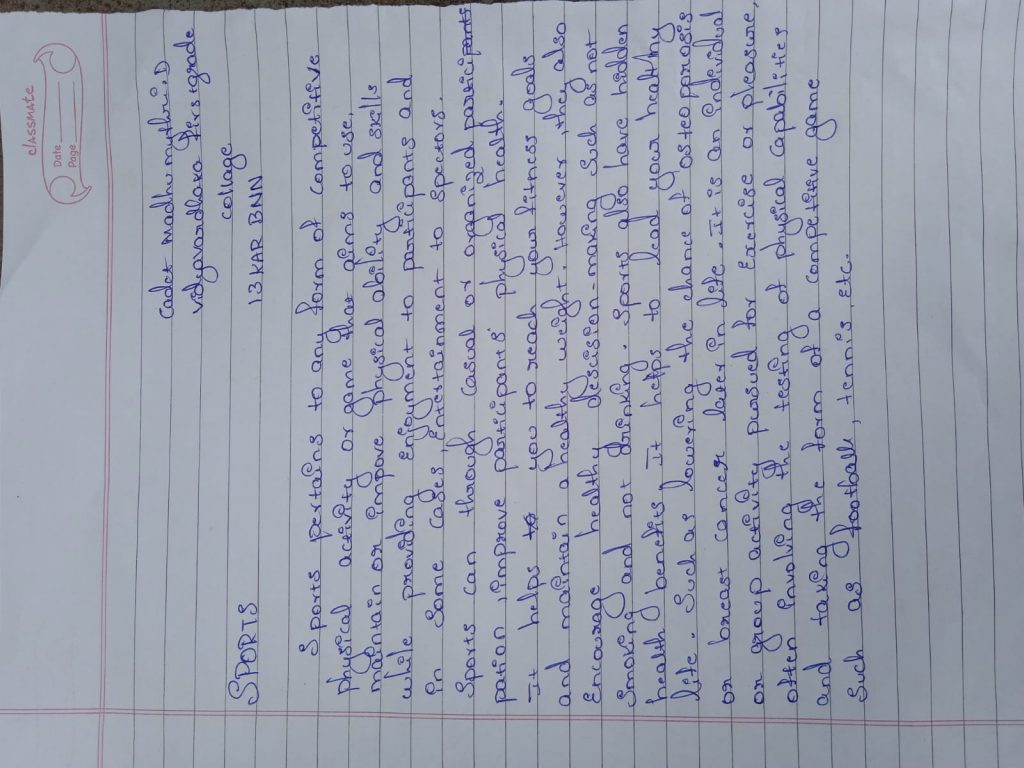 classmate
Date
Page
Cadet Madhumuthri D
Vidyavardhaka first grade
collage
13 KAR BNN
SPORTS
Sports pertains to any form of Competitive
physical activity or game that aims to use,
maintain or impove physical ability and skills
while providing Enjoyment to participants and
in Some Cases, Entertainment to Spectors.
Sports can through Casual or organized partici
pation, improve participants' physical health.
It helps you to reach your fitness goals
and maintain a healthy weight. However, they also
Encourage healthy descision-making Such as not
Smoking and not drinking. Sports also have hidden
health benefits It helps to lead your healthy
life. Such as lowering the chance of osteoprosis
or breast cancer later in life. It is an individual
or group activity pursued for Exercise or pleasure,
often involving the testing of physical Capabilities
and taking the form of a competitive game
Such as football, tennis, etc.